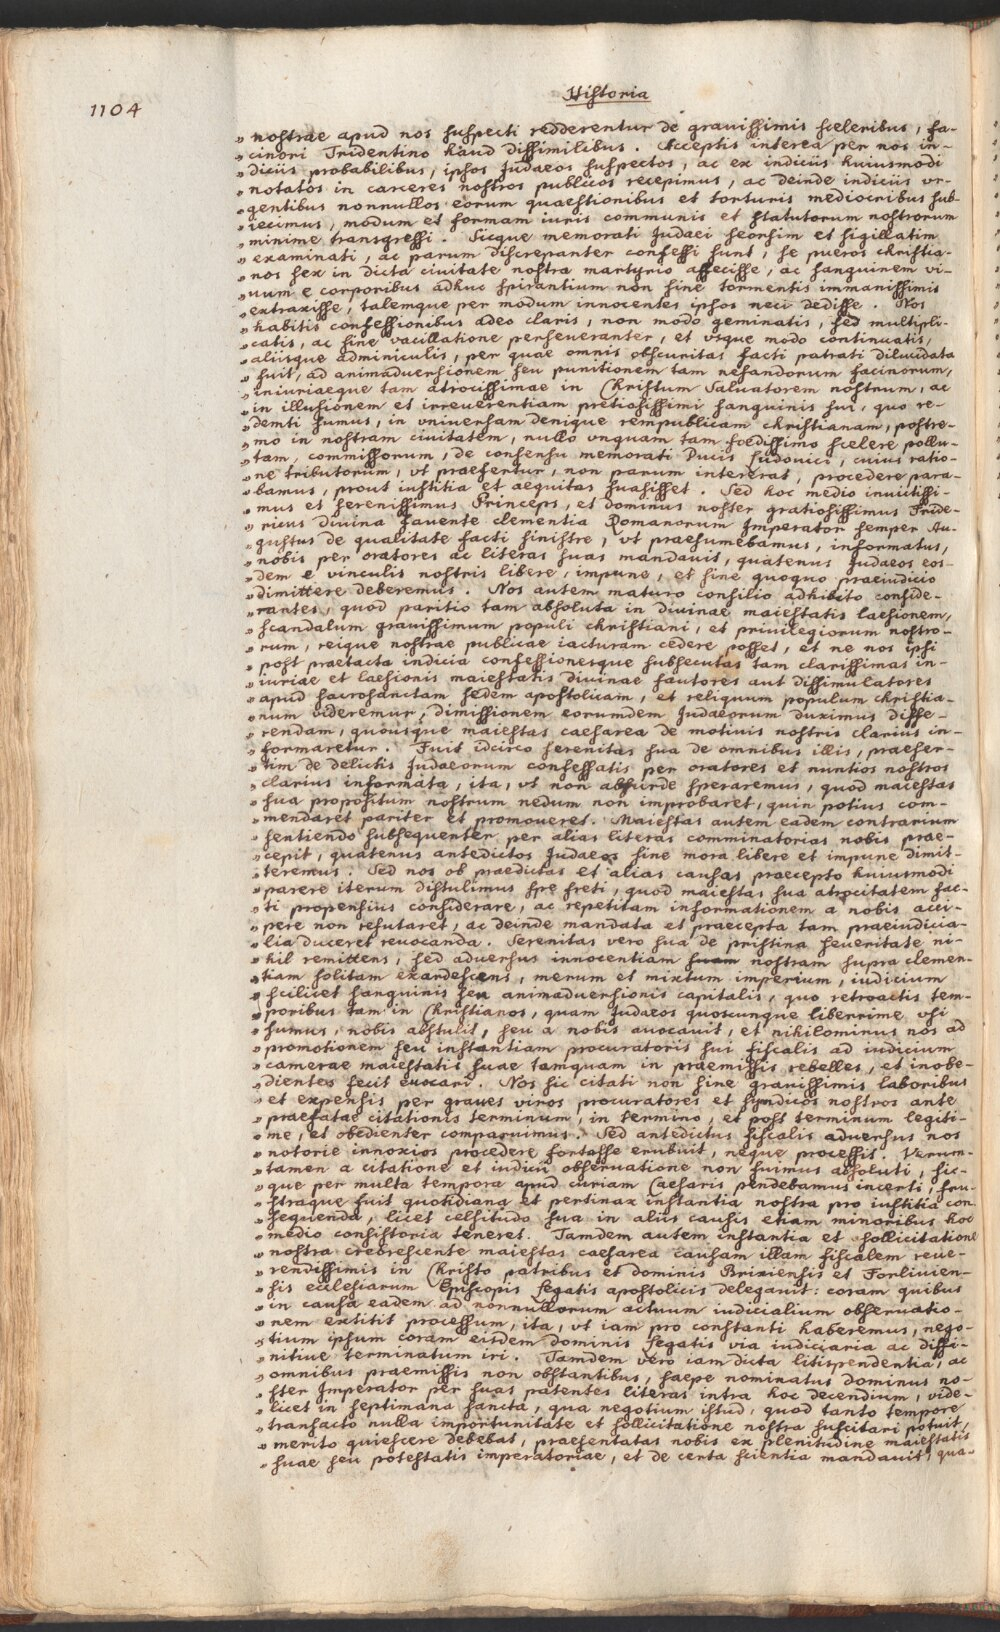 Historia
1104
" nostrae apud nos suspecti redderentur de gravissimis sceleribus, fa-
" cinori Tridentino haud dissimilibus. Acceptis interea per nos in-
" diciis probabilibus, ipsos Judaeos suspectos, ac ex indiciis huiusmodi
" notatos in carceres nostros publicos recepimus, ac deinde indiciis vr-
" gentibus nonnullos eorum quaestionibus et torturis mediocribus sub-
" iecimus, modum et formam iuris communis et statutorum nostrorum
" minime transgressi. Sicque memorati Judaei seorsim et sigillatim
" examinati, ac parum discrepanter confessi sunt, se pueros christia-
" nos sex in dicta civitate nostra martyrio affecisse, ac sanguinem vi-
" uum e corporibus adhuc spirantium non sine tormentis immanissimis
" extraxisse, talemque per modum innocentes ipsos neci dedisse. Nos
" habitis confessionibus adeo claris, non modo geminatis, sed multipli-
" catis, ac sine vacillatione perseueranter, et vsque modo continuatis,
" aliisque adminiculis, per quae omnis obscuritas facti patrati dilucidata
" fuit, ad animaduersionem seu punitionem tam nefandorum facinorum,
" iniuriaeque tam atrocissimae in Christum Saluatorem nostrum, ac
" in illusionem et irreuerentiam pretiosissimi sanguinis sui, quo re-
" demti sumus, in vniuersam denique rempublicam christianam, postre-
" mo in nostram ciuitatem, nullo vnquam tam foedissimo scelere pollu-
" tam, commissorum, de consensu memorati Ducis Ludouici, cuius ratio-
" ne tributorum, vt praefertur, non parum intererat, procedere para-
" bamus, prout iustitia et aequitas suasisset. Sed hoc medio inuictissi-
" mus et serenissimus Princeps, et dominus noster gratiosissimus Fride-
" ricus diuina fauente clementia Romanorum Imperator semper Au-
" gustus de qualitate facti sinistre, vt praesumebamus, informatus,
" nobis per oratores ac literas suas mandauit, quatenus Judaeos eos-
" dem e vinculis nostris libere, impune, et sine quoquo praeiudicio
" dimittere deberemus. Nos autem maturo consilio adhibito conside-
" rantes, quod paritio tam absoluta in diuinae maiestatis laesionem,
" scandalum grauissimum populi christiani, et priuilegiorum nostro-
" rum, reique nostrae publicae iacturam cedere posset, et ne nos ipsi
" post praetacta indicia confessionesque subsecutas tam clarissimas in-
" iuriae et laesionis maiestatis diuinae fautores aut dissimulatores
" apud sacrosanctam sedem apostolicam, et reliquum populum christia-
" num videremur, dimissionem eorumdem Judaeorum duximus diffe-
" rendam, quousque maiestas caesarea de motiuis nostris clarius in-
" formaretur. Fuit idcirco serenitas sua de omnibus illis, praeser-
" tim de delictis Judaeorum confessatis per oratores et nuntios nostros
" clarius informata, ita, vt non absurde speraremus, quod maiestas
" sua propositum nostrum nedum non improbaret, quin potius com-
" mendaret pariter et promoueret. Maiestas autem eadem contrarium
" sentiendo subsequenter per alias literas comminatorias nobis prae-
" cepit, quatenus antedictos Judaeos sine mora libere et impune dimit-
" teremus. Sed nos ob praedictas et alias causas praecepto huiusmodi
" parere iterum distulimus spe freti, quod maiestas sua atrocitatem fac-
" ti propensius considerare, ac repetitam informationem a nobis acci-
" pere non refutaret, ac deinde mandata et praecepta tam praeiudicia-
" lia duceret reuocanda. Serenitas vero sua de pristina seueritate ni-
" hil remittens, sed aduersus innocentiam suam nostram supra clemen-
" tiam solitam exardescens, merum et mixtum imperium, iudicium
" scilicet sanguinis seu animaduersionis capitalis, quo retroactis tem-
" poribus tam in Christianos, quam Judaeos quoscunque liberrime vsi
" sumus, nobis abstulit, seu a nobis auocauit, et nihilominus nos ad
" promotionem seu instantiam procuratoris sui fiscalis ad iudicium
" camerae maiestatis suae tamquam in praemissis rebelles, et inobe-
" dientes fecit euocari. Nos sic citati non sine grauissimis laboribus
" et expensis per graues viros procuratores et syndicos nostros ante
" praefatae citationis terminum, in termino, et post terminum legiti-
" me, et obedienter comparuimus. Sed antedictus fiscalis aduersus nos
" notorie innoxios procedere fortasse erubuit, neque processit. Verum-
" tamen a citatione et iudicii obseruatione non fuimus absoluti, sic-
" que per multa tempora apud curiam Caesaris pendebamus incerti, fru-
" straque fuit quotidiana et pertinax instantia nostra pro iustitia con
" sequenda, licet celsitudo sua in aliis causis etiam minoribus hoc
" medio consistoria teneret. Tamdem autem instantia et sollicitatione
" nostra crebrescente maiestas caesarea causam illam fiscalem reue-
" rendissimis in Christo patribus et dominis Brixiensis et Forliuien-
" sis ecclesiarum Episcopis Legatis apostolicis delegauit: coram quibus
" in causa eadem ad nonnullorum actuum iudicialium obseruatio-
" nem extitit processum, ita, vt iam pro constanti haberemus, nego-
" tium ipsum coram eisdem dominis Legatis via iudiciaria ac diffi-
" nitiue terminatum iri. Tamdem vero iam dicta litispendentia, ac
" omnibus praemissis non obstantibus, saepe nominatus dominus no-
" ster Imperator per suas patentes literas intra hoc decendium, vide-
" licet in septimana sancta, qua negotium istud, quod tanto tempore
" transacto nulla importunitate et sollicitatione nostra suscitari potuit,
" merito quiescere debebat, praesentatas nobis ex plenitudine maiestatis
" suae seu potestatis imperatoriae, et de certa scientia mandauit, qua-